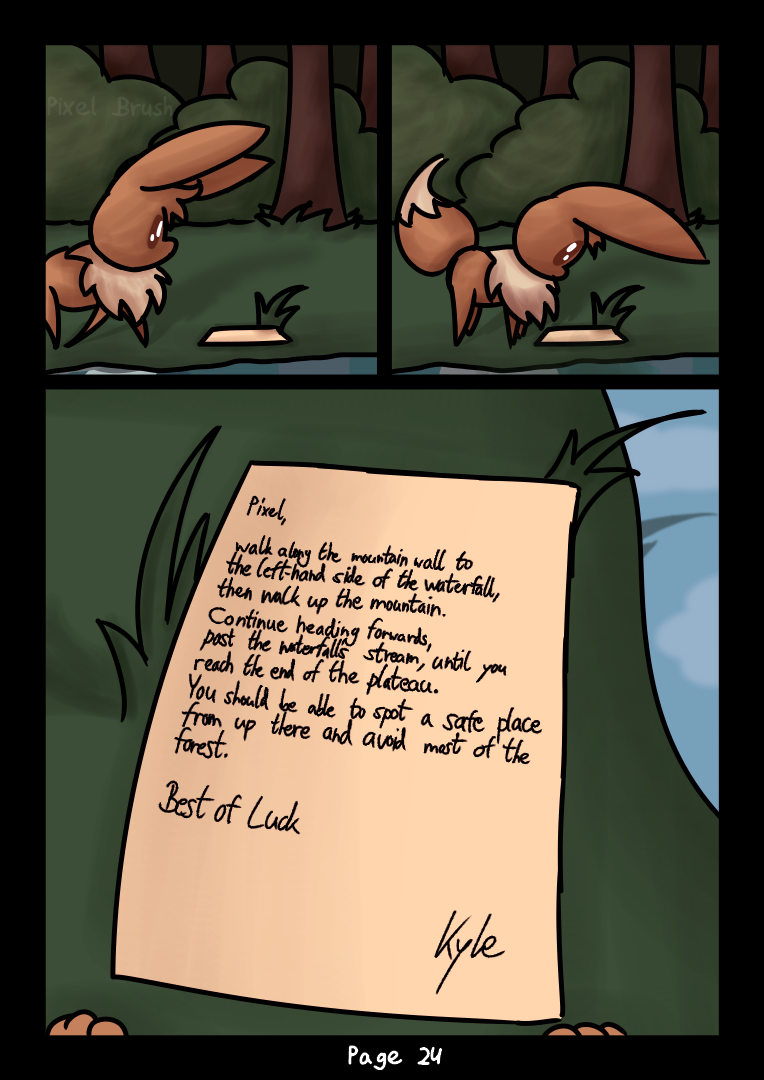 Pixel Brush
Pixel,
walk along the mountain wall to
the left-hand side of the waterfall,
then walk up the mountain.
Continue heading forwards,
past the waterfalls stream, until you
reach the end of the plateau.
You should be able to spot a safe place
from up there and avoid most of the
forest.
Best of Luck
Kyle
Page 24